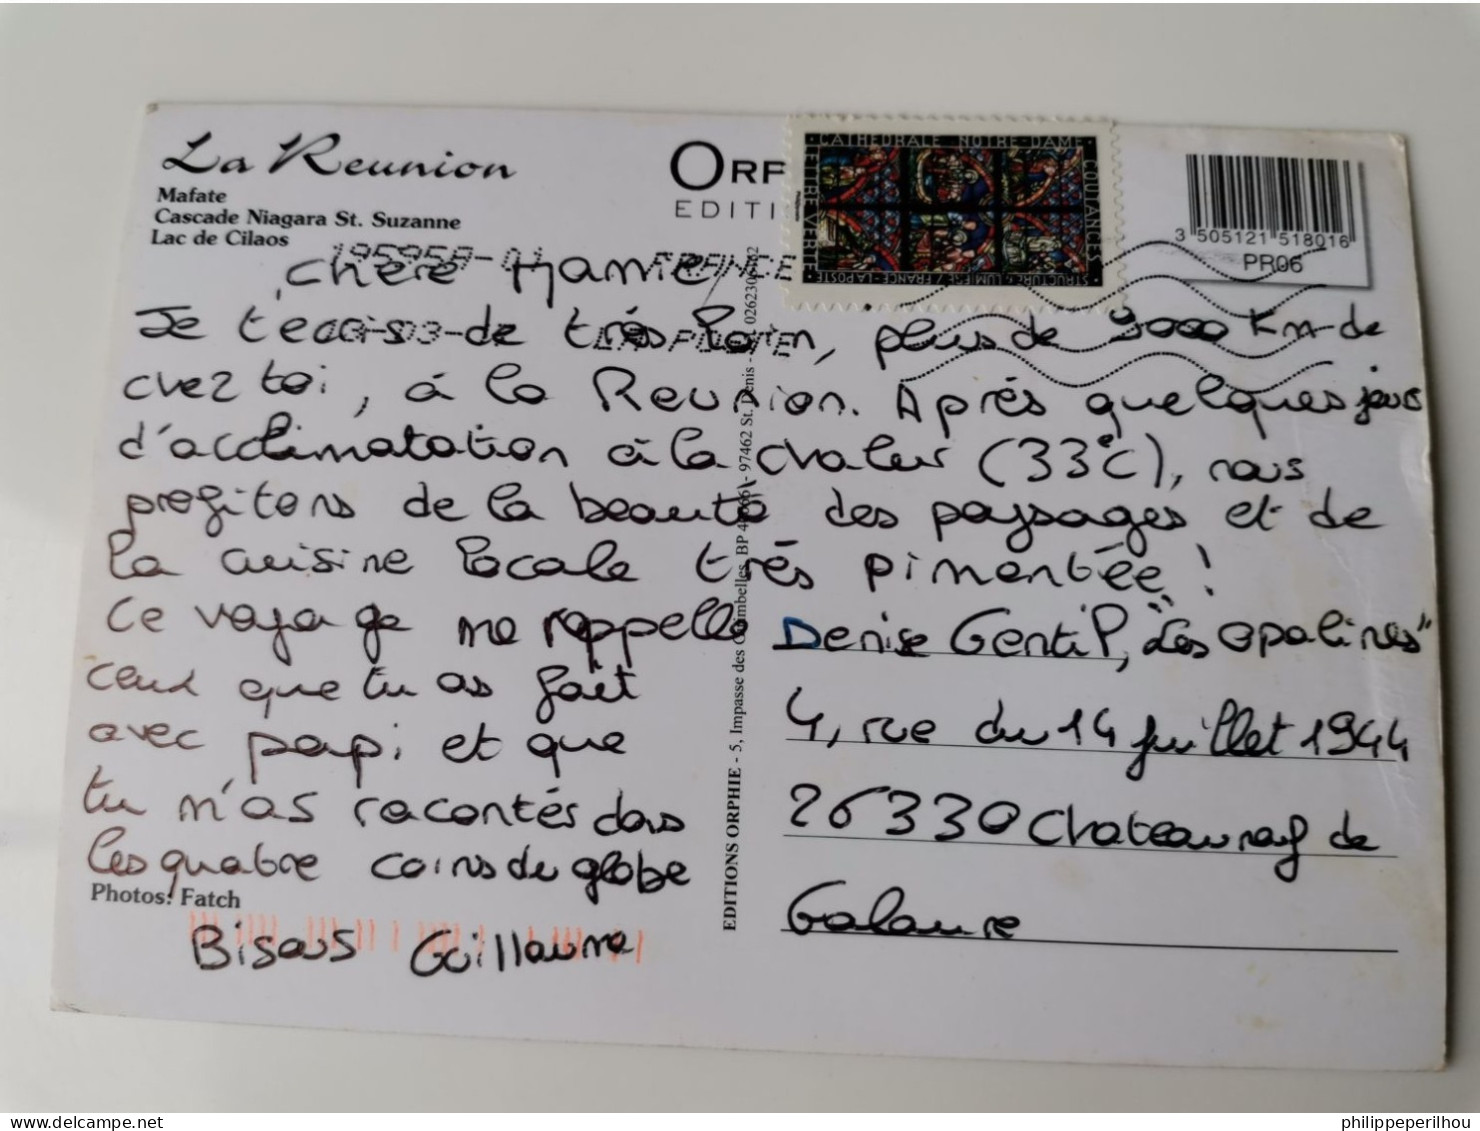 La Reunion
Mafate
Cascade Niagara St. Suzanne
Lac de Cilaos
ORF
EDITI
CATHEDRALE NOTRE-DAME · COUTANCES
STRUCTURE & LUMIÈRE / FRANCE · LA POSTE
LETTRE VERTE
3 505121 518016
PR06
195959-01 FRANCE
LA POSTE
Chère Mamie,
Je t'écris de très loin, plus de 9000 Km de
chez toi, à la Reunion. Après quelques jours
d'acclimatation à la chaleur (33°c), nous
profitons de la beauté des paysages et de
la cuisine locale très pimentée !
Ce voyage me rappelle
ceux que tu as fait
avec papi et que
tu m'as racontés dans
les quatre coins du globe
Bisous Guillaume
Photos: Fatch
EDITIONS ORPHIE - 5, Impasse des Colombelles, BP - 97462 St. Denis -
Denise Gentil, "Les Opalines"
4, rue du 14 juillet 1944
26330 Chateauneuf de
Galaure
philippeperilhou